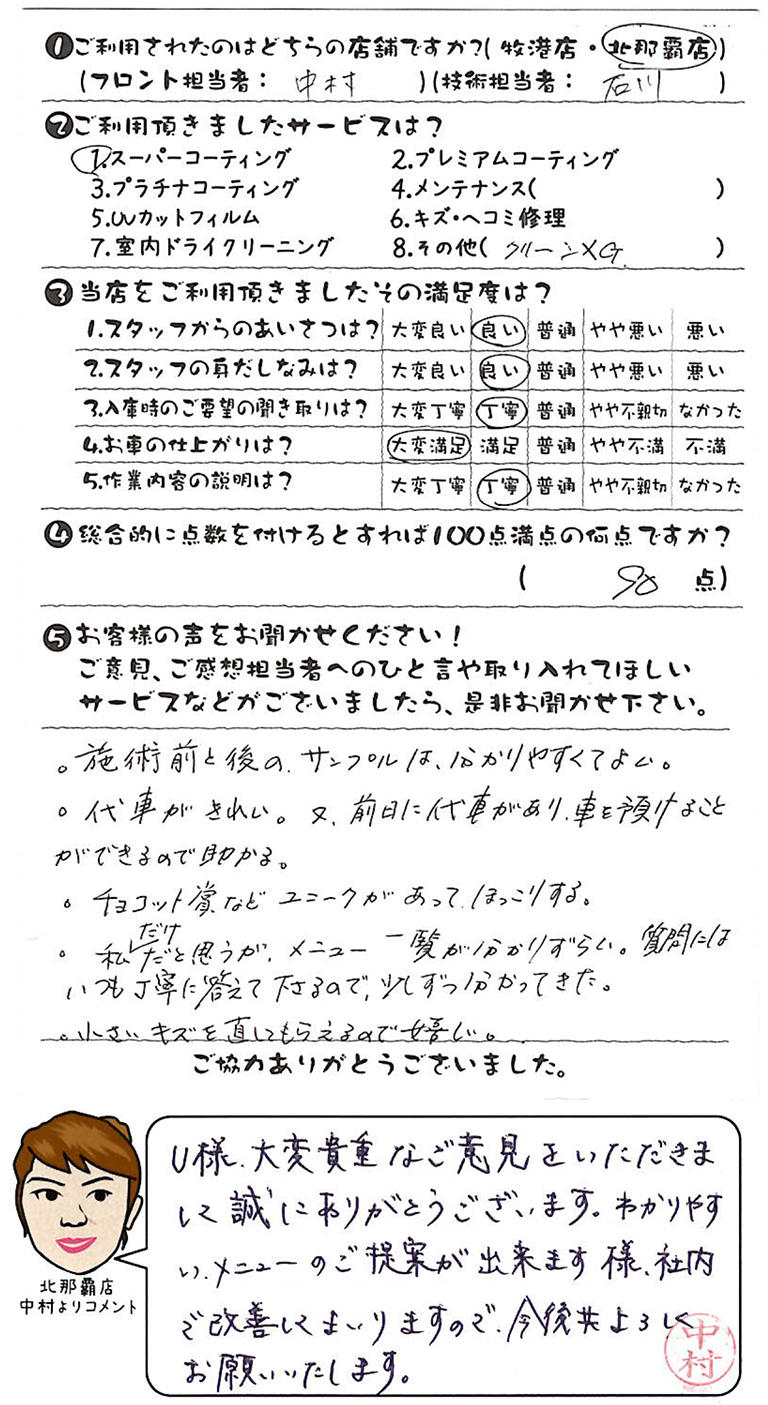 ❶ご利用されたのはどちらの店舗ですか?(牧港店・北那覇店)
(フロント担当者: 中村 )(技術担当者: 石川 )
❷ご利用頂きましたサービスは?
1.スーパーコーティング 2.プレミアムコーティング
3.プラチナコーティング 4.メンテナンス( )
5.UVカットフィルム 6.キズ・ヘコミ修理
7.室内ドライクリーニング 8.その他( クリーンXG )
❸当店をご利用頂きましたその満足度は?
1.スタッフからのあいさつは? 大変良い 良い 普通 やや悪い 悪い
2.スタッフの身だしなみは? 大変良い 良い 普通 やや悪い 悪い
3.入庫時のご要望の聞き取りは? 大変丁寧 丁寧 普通 やや不親切 なかった
4.お車の仕上がりは? 大変満足 満足 普通 やや不満 不満
5.作業内容の説明は? 大変丁寧 丁寧 普通 やや不親切 なかった
❹総合的に点数を付けるとすれば100点満点の何点ですか?
( 90 点)
❺お客様の声をお聞かせください!
ご意見、ご感想担当者へのひと言や取り入れてほしい
サービスなどがございましたら、是非お聞かせ下さい。
。施術前と後の、サンプルは、分かりやすくてよい。
。代車がきれい。又、前日に代車があり、車を預けること
ができるので助かる。
。チョコット賞などユニークがあって、ほっこりする。
。私だけだと思うが、メニュー一覧が分かりずらい。質問には
いつも丁寧に答えて下さるので、少しずつ分かってきた。
。小さいキズを直してもらえるので嬉しい。
ご協力ありがとうございました。
U様、大変貴重なご意見をいただきま
して誠にありがとうございます。わかりやす
い、メニューのご提案が出来ます様、社内
で改善してまいりますので、今後共よろしく
お願いいたします。
中村
北那覇店
中村よりコメント